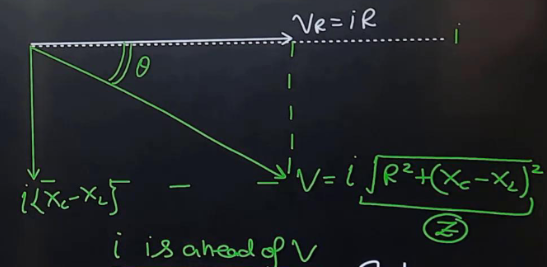 V_R = iR
i
θ
i{X_C - X_L}
V = i √R² + (X_C - X_L)²
Z
i is ahead of V